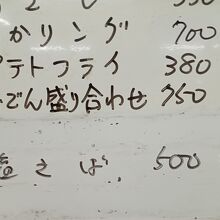 かリング 700
テトフライ 380
でん盛り合わせ 750
塩そば 500